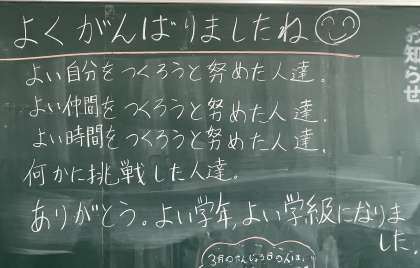 よくがんばりましたね
お知らせ
よい自分をつくろうと努めた人達。
よい仲間をつくろうと努めた人達。
よい時間をつくろうと努めた人達。
何かに挑戦した人達。
ありがとう。よい学年、よい学級になりま
した。
3月のたんじょう日の人は、